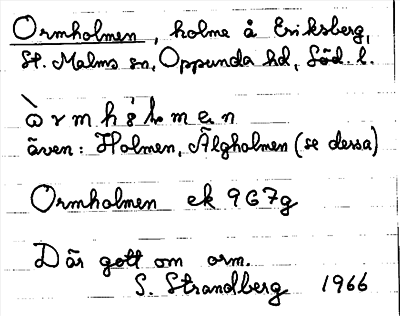 Ormholmen, holme å Eriksberg,
St. Malms sn, Oppunda hd, Söd. l.
även: Holmen, Älgholmen (se dessa)
Ormholmen ek 9G7g
Där gott om orm.
S. Strandberg 1966